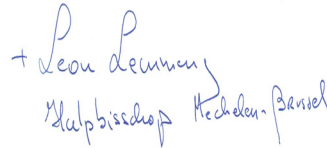 + Leon Lemmens
Hulpbisschop Mechelen-Brussel